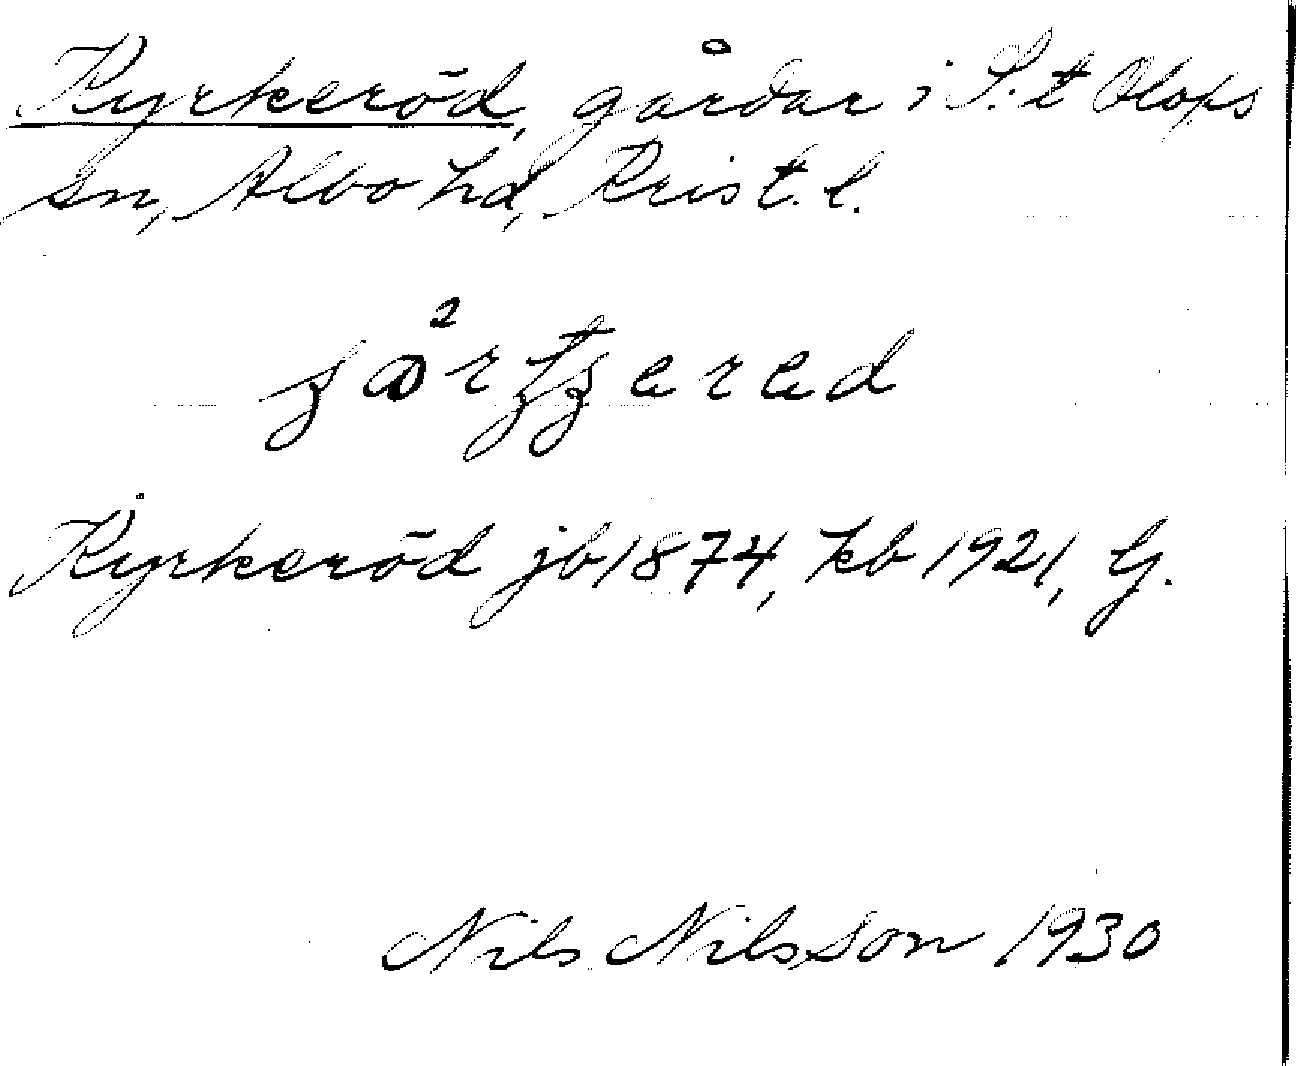 Kyrkeröd, gårdar i S:t Olofs
sn, Albo hd, Krist. l.
Kyrkeröd jb 1874, kb 1921, G.
Nils Nilsson 1930